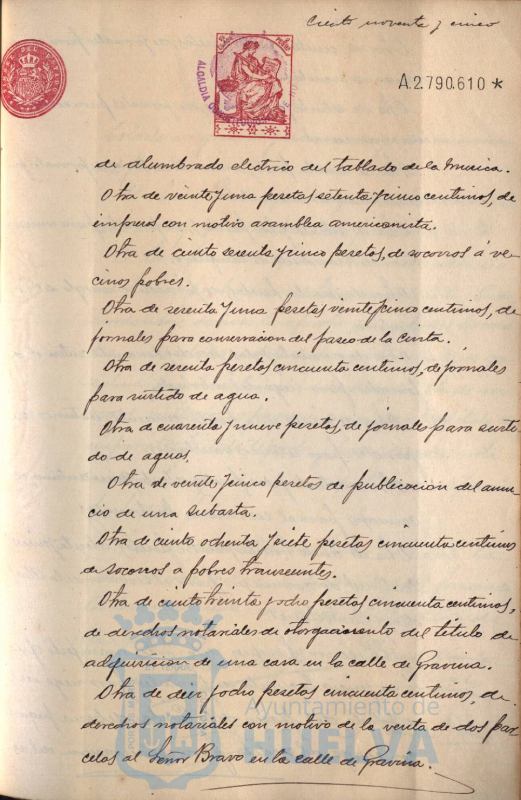 Ciento noventa y cinco
A.2.790.610*
de alumbrado electrico del tablado de la musica.
Otra de veinte y una pesetas setenta y cinco centimos, de
impresos con motivo asamblea americanista.
Otra de ciento sesenta y cinco pesetas, de socorros á ve
cinos pobres.
Otra de sesenta y una pesetas veinte y cinco centimos, de
jornales para conservacion del paseo de la Cinta.
Otra de sesenta pesetas cincuenta centimos, de jornales
para surtido de agua.
Otra de cuarenta y nueve pesetas, de jornales para surti
do de aguas.
Otra de veinte y cinco pesetas de publicacion del anun
cio de una subasta.
Otra de ciento ochenta y siete pesetas cincuenta centimos
de socorros a pobres transeuntes.
Otra de ciento treinta y ocho pesetas cincuenta centimos,
de derechos notariales de otorgamiento del título de
adquisicion de una casa en la calle de Gravina.
Otra de diez y ocho pesetas cincuenta centimos, de
derechos notariales con motivo de la venta de dos par
celas al Señor Bravo en la calle de Gravina.
Ayuntamiento de
HUELVA